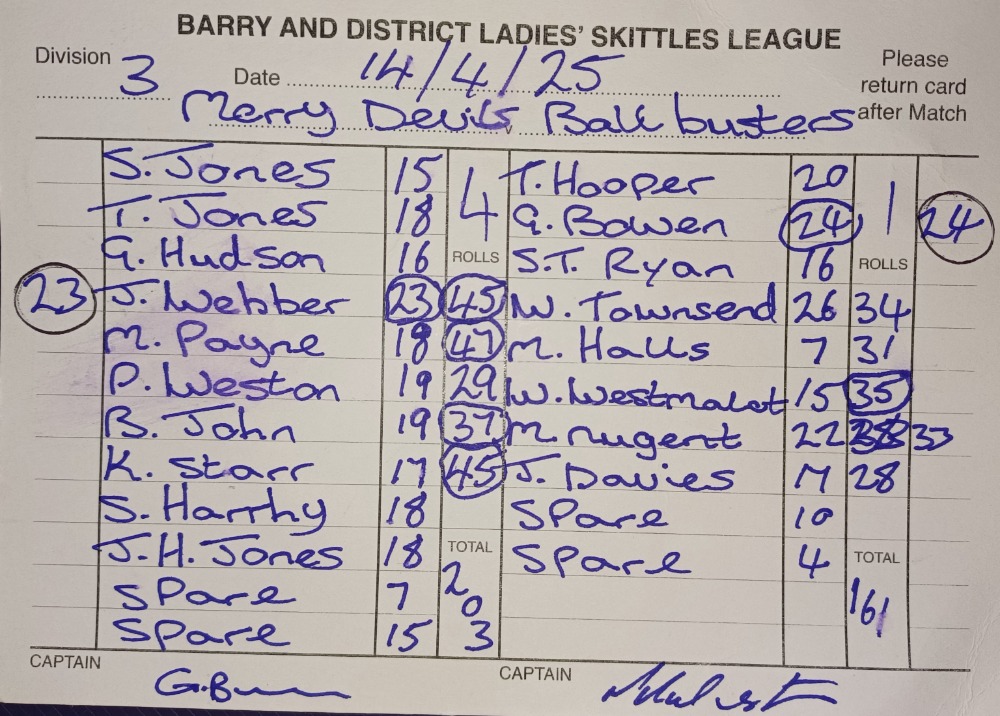 BARRY AND DISTRICT LADIES' SKITTLES LEAGUE
Division 3 Date 14/4/25 Please return card after Match
Merry Devils v Ball busters
S. Jones 15 4 T. Hooper 20 1
T. Jones 18 G. Bowen 24 24
G. Hudson 16 ROLLS S.T. Ryan 16 ROLLS
23 J. Webber 23 45 W. Townsend 26 34
M. Payne 18 47 M. Halls 7 31
P. Weston 19 29 W. Westmalot 15 35
B. John 19 37 M. Nugent 22 33
K. Starr 17 45 J. Davies 17 28
S. Harrhy 18 Spare 10
J.H. Jones 18 TOTAL Spare 4 TOTAL
Spare 7 203 161
Spare 15
CAPTAIN CAPTAIN